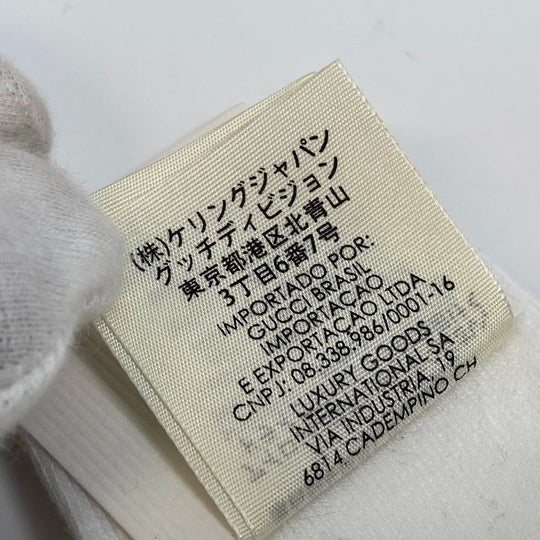 (株)ケリングジャパン
グッチディビジョン
東京都港区北青山
3丁目6番7号
IMPORTADO POR:
GUCCI BRASIL
IMPORTACAO
E EXPORTACAO LTDA
CNPJ: 08.338.986/0001-16
LUXURY GOODS
INTERNATIONAL SA
VIA INDUSTRIA, 19
6814 CADEMPINO CH